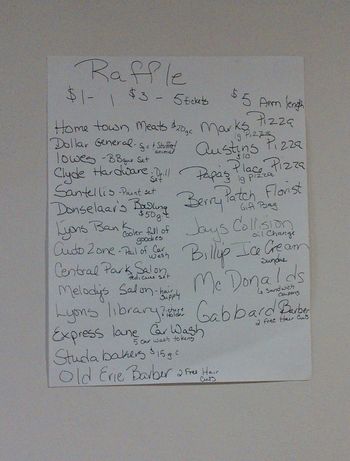 Raffle
$1 - 1 $3 - 5 tickets $5 Arm length
Home town Meats $20 gc
Dollar General - gc + Stuffed animal
lowes - BBque set
Clyde Hardware Drill set
Santellis - Paint set
Donselaar's
$50 gc
Lyons Bank Cooler full of goodies
Auto Zone - Pail of Car Wash
Central Park Salon
Pedicure set
Melodys Salon - Hair Supply
Lyons library
Express lane Car Wash
5 car wash tokens
Studabakers $15 gc
Old Erie Barber 2 Free Hair Cuts
Marks Pizza
lg Pizza
Austins Pizza
$10
Papas Place Pizza
lg pizza
Berry Patch Florist
Gift Bag
Jays Collision
Oil Change
Billys Ice Cream
Sundae
Mc Donalds
Sandwich Coupons
Gabbard Barber
2 free Hair Cuts